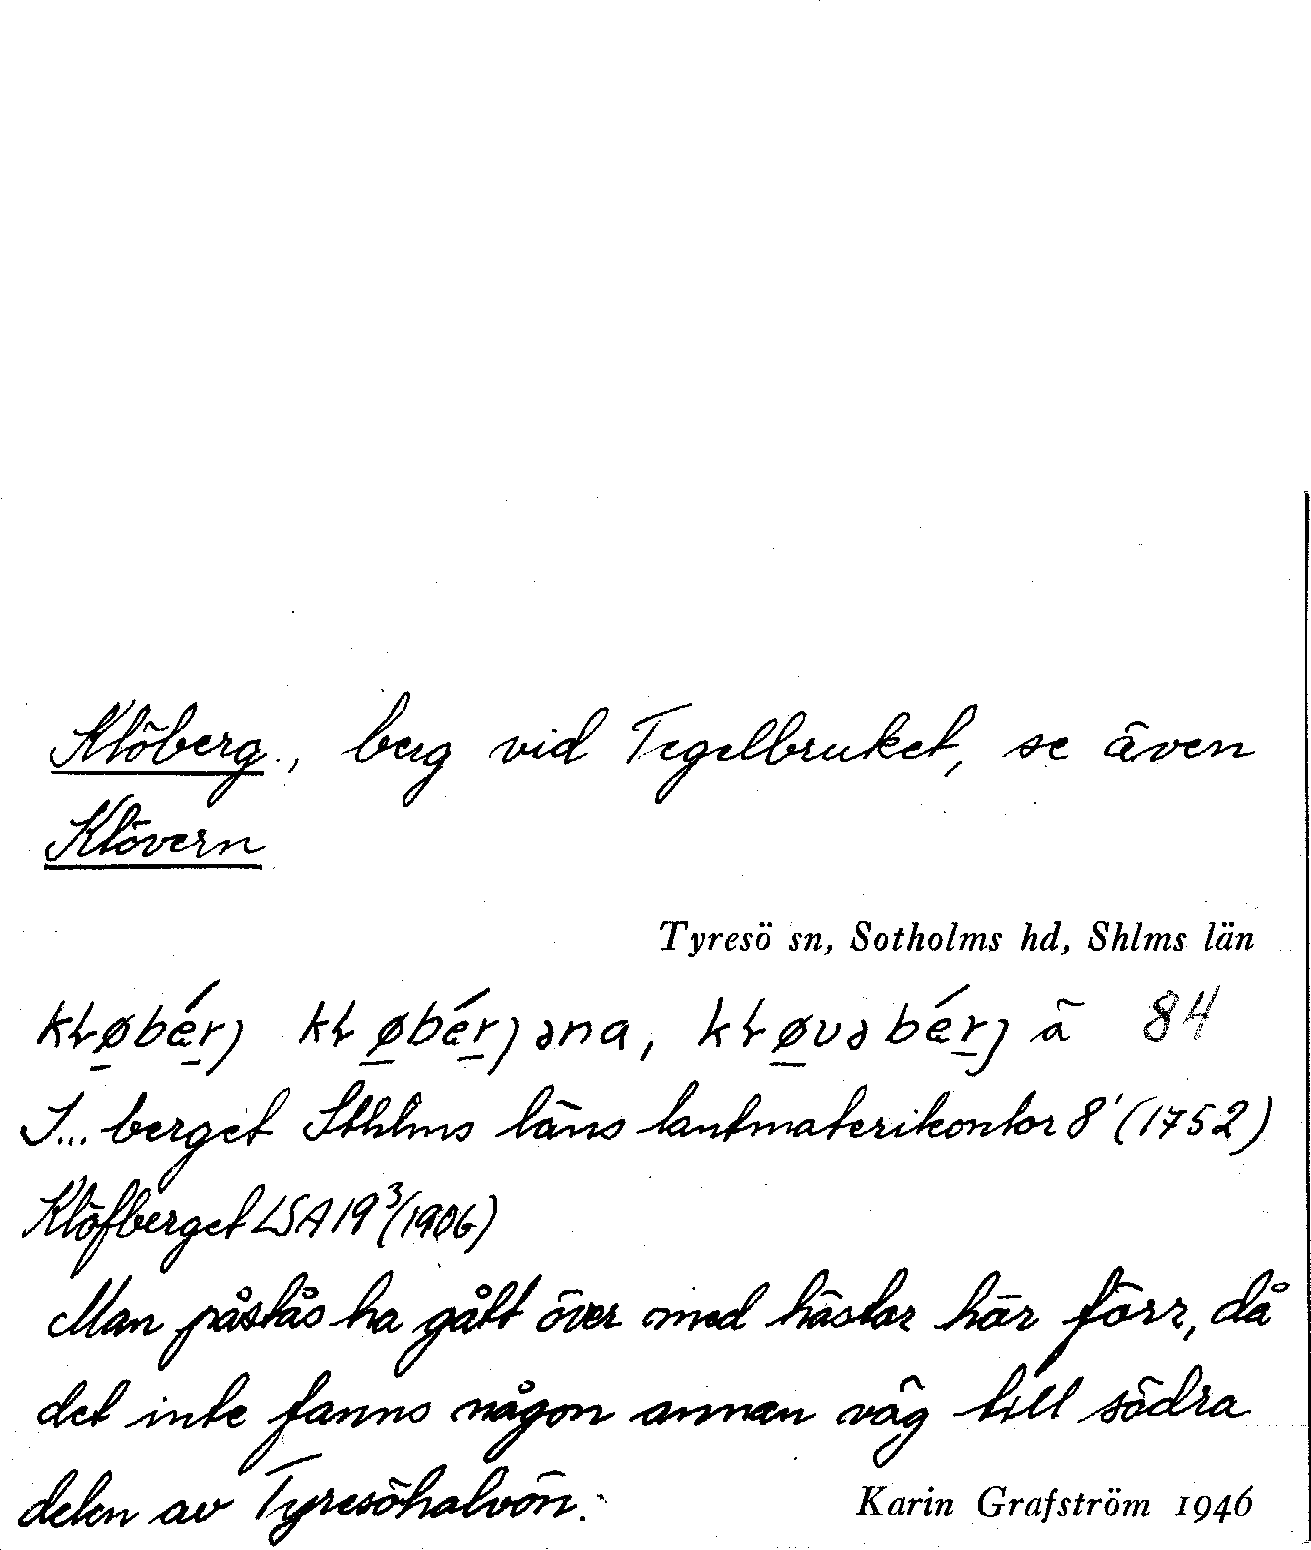 Klöberg., berg vid Tegelbruket, se även
Klövern
Tyresö sn, Sotholms hd, Shlms län
kłøbérj kłøbérjəna, kłøvəbérj ä 84
I... berget Sthlms läns lantmäterikontor 8' (1752)
Klöfberget LSA 19³ (1906)
Man påstås ha gått över med hästar här förr, då
det inte fanns någon annan väg till södra
delen av Tyresöhalvön.
Karin Grafström 1946